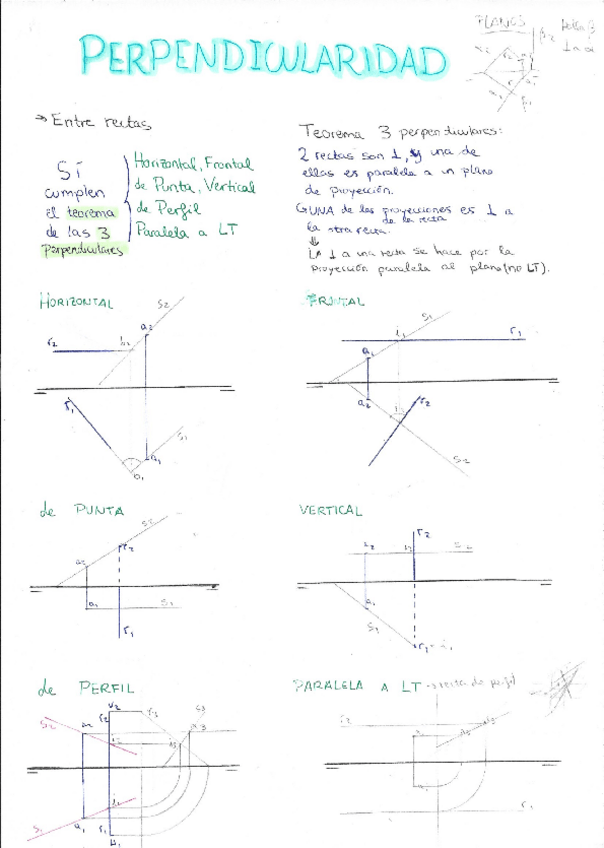 PLANOS
PERPENDICULARIDAD
→ Entre rectas
SÍ
cumplen
el teorema
de las 3
perpendiculares
Horizontal, Frontal
de Punta, Vertical
de Perfil
Paralela a LT
Teorema 3 perpendiculares:
2 rectas son ⊥, y una de
ellas es paralela a un plano
de proyección.
UNA de las proyecciones es ⊥ a
de la recta
la otra recta.
⇓
La ⊥ a una recta se hace por la
proyección paralela al plano (no LT).
HORIZONTAL
s2
r2
a2
r1
s1
a1
FRONTAL
s1
r1
i1
a1
a2
r2
s2
de PUNTA
s2
r2
a2
a1
s1
r1
VERTICAL
r2
s2
a1
s1
r1
de PERFIL
v2
r2
s2
a2
s3
r3
a3
i1
s1
a1
r1
H1
PARALELA A LT → recta de perfil
r2
r1